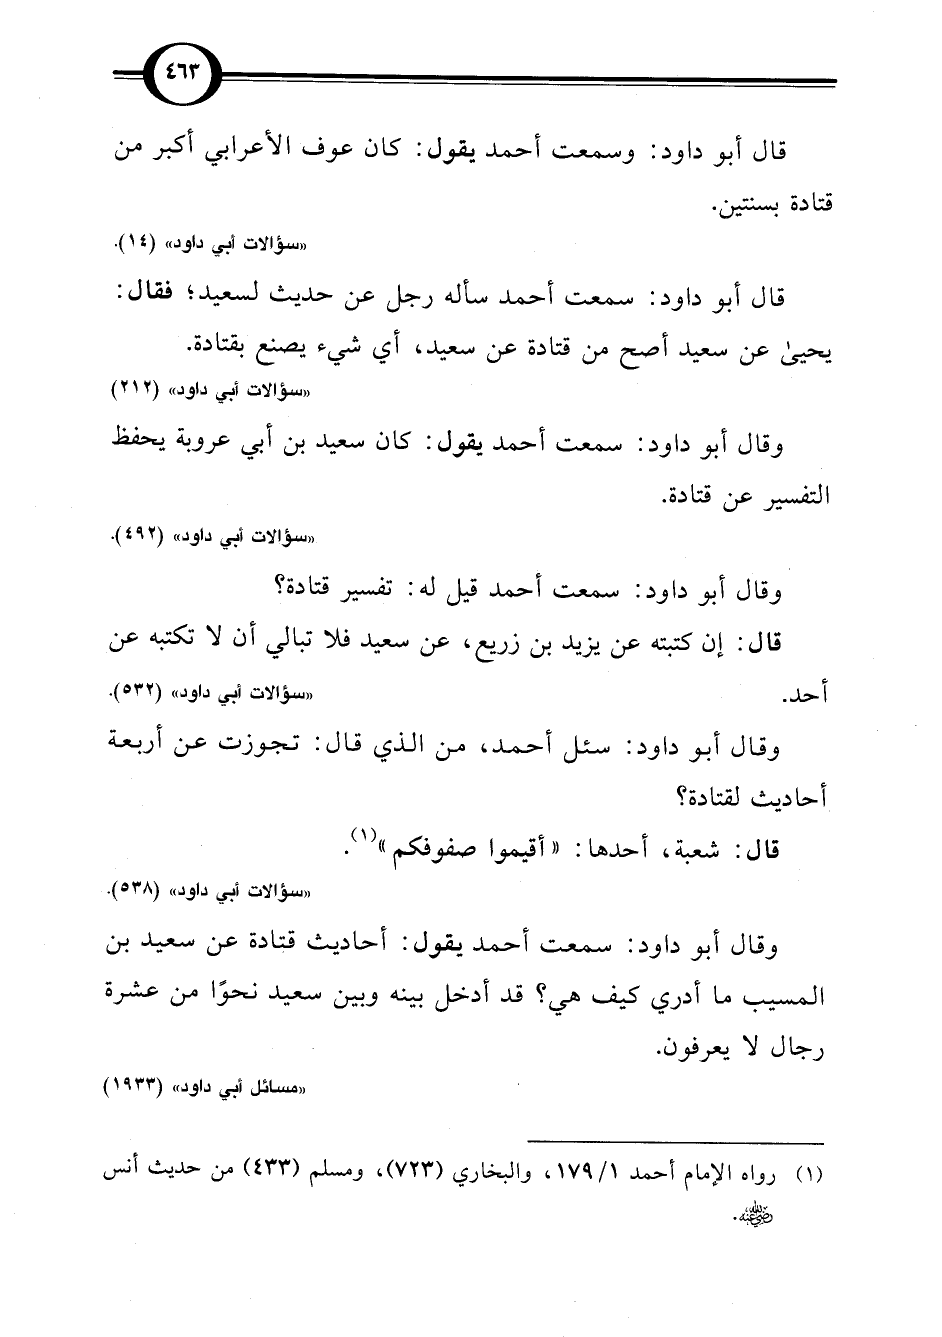 ٤٦٣
قال أبو داود: وسمعت أحمد يقول: كان عوف الأعرابي أكبر من
قتادة بسنتين.
«سؤالات أبي داود» (١٤).
قال أبو داود: سمعت أحمد سأله رجل عن حديث لسعيد؛ فقال:
يحيىٰ عن سعيد أصح من قتادة عن سعيد، أي شيء يصنع بقتادة.
«سؤالات أبي داود» (٢١٢)
وقال أبو داود: سمعت أحمد يقول: كان سعيد بن أبي عروبة يحفظ
التفسير عن قتادة.
«سؤالات أبي داود» (٤٩٢).
وقال أبو داود: سمعت أحمد قيل له: تفسير قتادة؟
قال: إن كتبته عن يزيد بن زريع، عن سعيد فلا تبالي أن لا تكتبه عن
أحد. «سؤالات أبي داود» (٥٣٢).
وقال أبو داود: سئل أحمد، من الذي قال: تجوزت عن أربعة
أحاديث لقتادة؟
قال: شعبة، أحدها: «أقيموا صفوفكم»(١).
«سؤالات أبي داود» (٥٣٨).
وقال أبو داود: سمعت أحمد يقول: أحاديث قتادة عن سعيد بن
المسيب ما أدري كيف هي؟ قد أدخل بينه وبين سعيد نحوًا من عشرة
رجال لا يعرفون.
«مسائل أبي داود» (١٩٣٣)
(١) رواه الإمام أحمد ١/ ١٧٩، والبخاري (٧٢٣)، ومسلم (٤٣٣) من حديث أنس
رضي الله عنه.